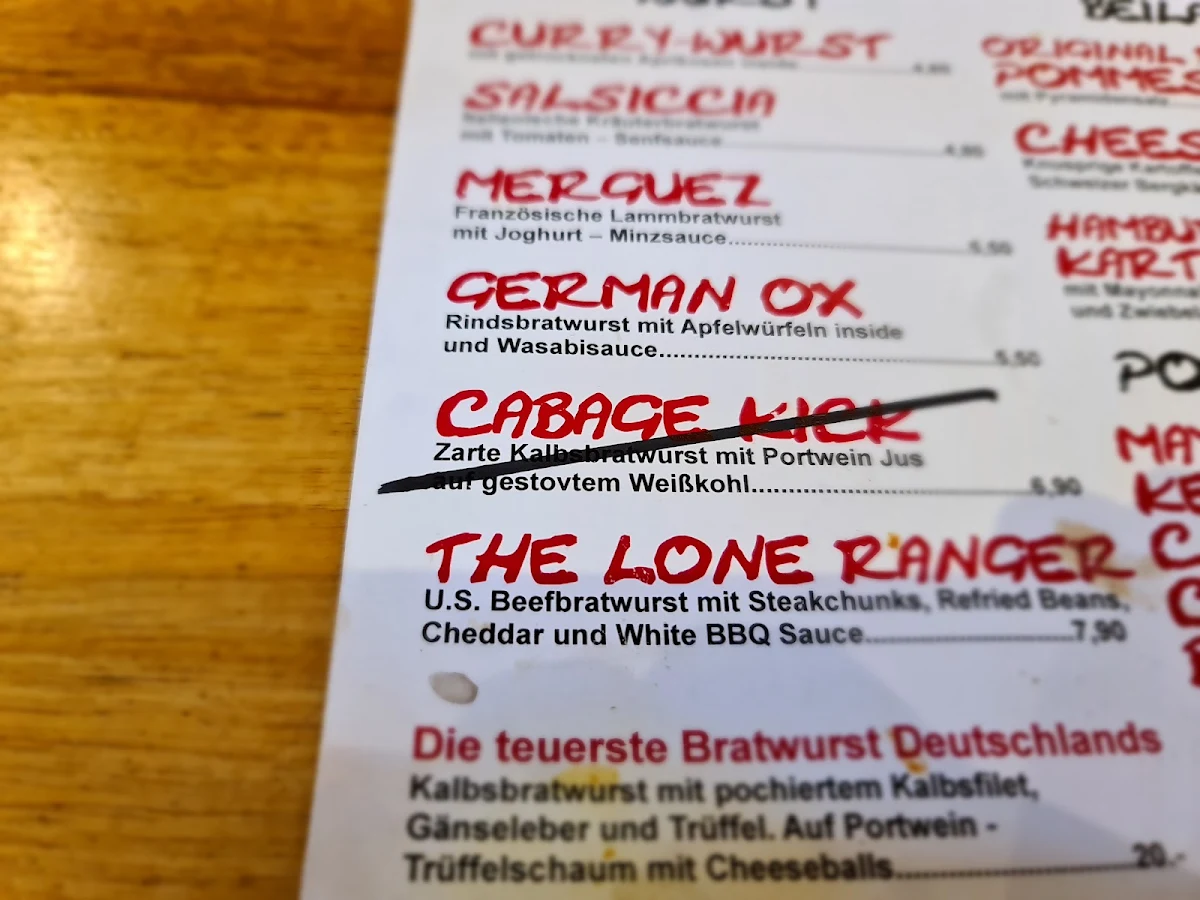 CURRY-WURST
4,95
SALSICCIA
Italienische Kräuterbratwurst
mit Tomaten – Senfsauce
4,95
MERGUEZ
Französische Lammbratwurst
mit Joghurt – Minzsauce..............................5,50
GERMAN OX
Rindsbratwurst mit Apfelwürfeln inside
und Wasabisauce..........................................5,50
CABAGE KICK
Zarte Kalbsbratwurst mit Portwein Jus
auf gestovtem Weißkohl...................................6,90
THE LONE RANGER
U.S. Beefbratwurst mit Steakchunks, Refried Beans,
Cheddar und White BBQ Sauce..........................7,90
Die teuerste Bratwurst Deutschlands
Kalbsbratwurst mit pochiertem Kalbsfilet,
Gänseleber und Trüffel. Auf Portwein -
Trüffelschaum mit Cheeseballs..............................20.-
ORIGINAL
POMMES
CHEES
Schweizer Bergk
HAMBU
KART
mit Mayonna
und Zwiebel
PO
MA
KE
C